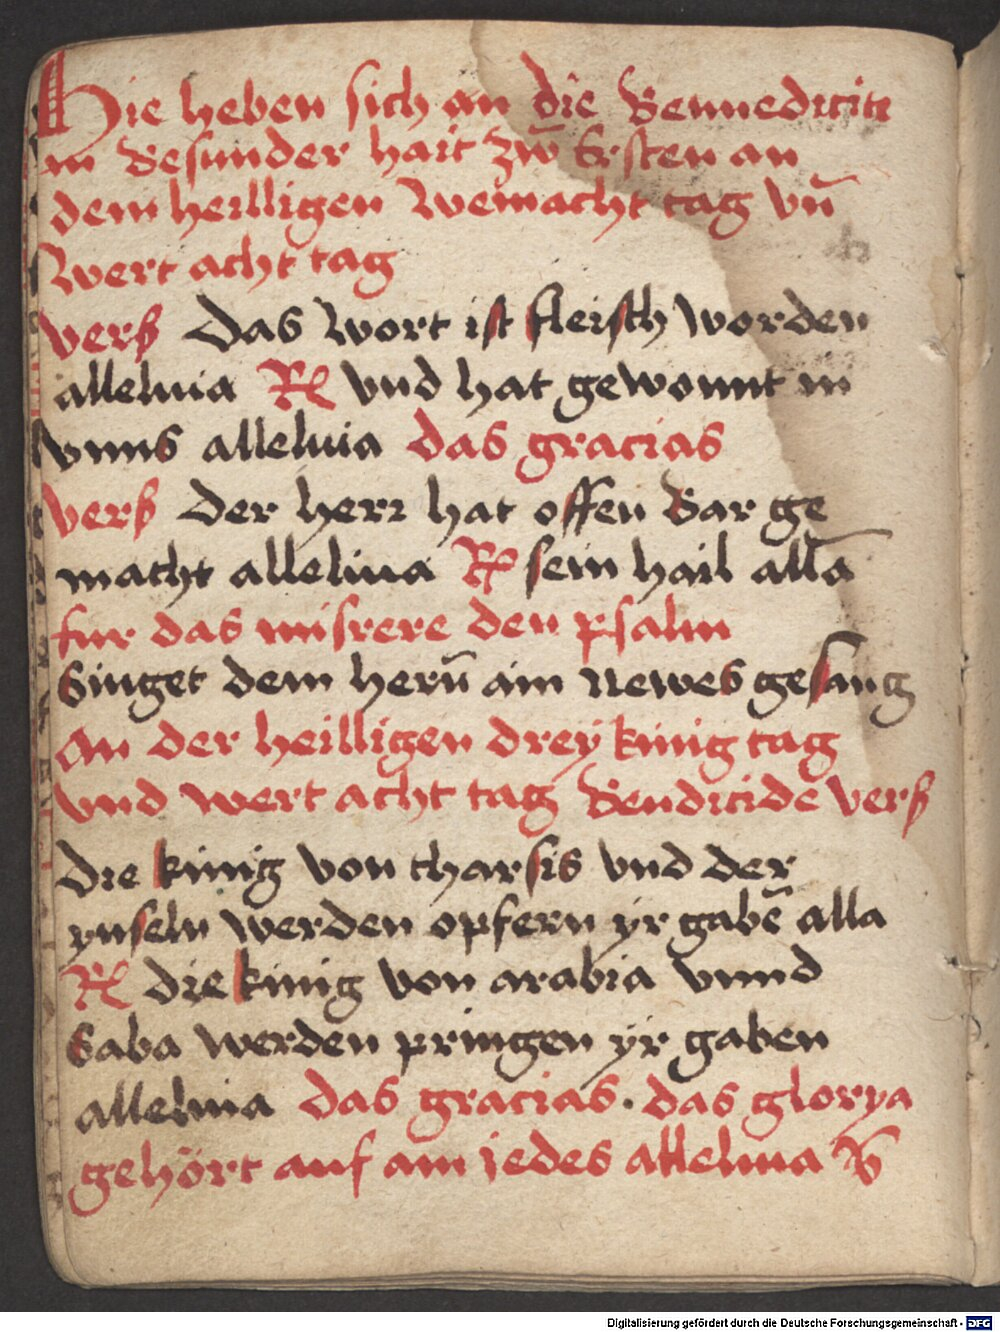 Hie heben sich an die Bennediciti
in besunder hait zw̄ Ersten an
dem heilligen Weinacht tag vn̄
Wert acht tag
vers Das Wort ist fleisch worden
alleluia R vnd hat gewonnt in
vnns alleluia das gracias
vers Der herr hat offen bar ge
macht alleluia R sein hail allā
fur das misrere den psalm
Singet dem hern̄ ain newes gesang
An der heilligen drey kinig tag
vnd wert acht tag Bendicide vers
Die kinig von tharsis vnd der
ynseln werden opfern yr gabē alla
R die kinig von arabia vnnd
Saba werden pringen yr gaben
alleluia das gracias · das glorya
gehört auf ain iedes alleluia
Digitalisierung gefördert durch die Deutsche Forschungsgemeinschaft - DFG